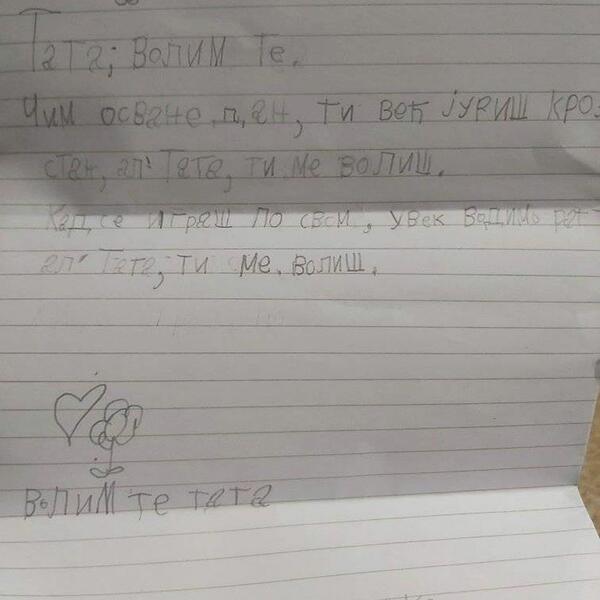 Тата, волим те.
Чим осване дан, ти већ јуриш кроз
стан, ал' Тата, ти ме волиш.
Кад се играш по свом, увек водимо рат
ал' Тата, ти ме волиш.
волим те тата